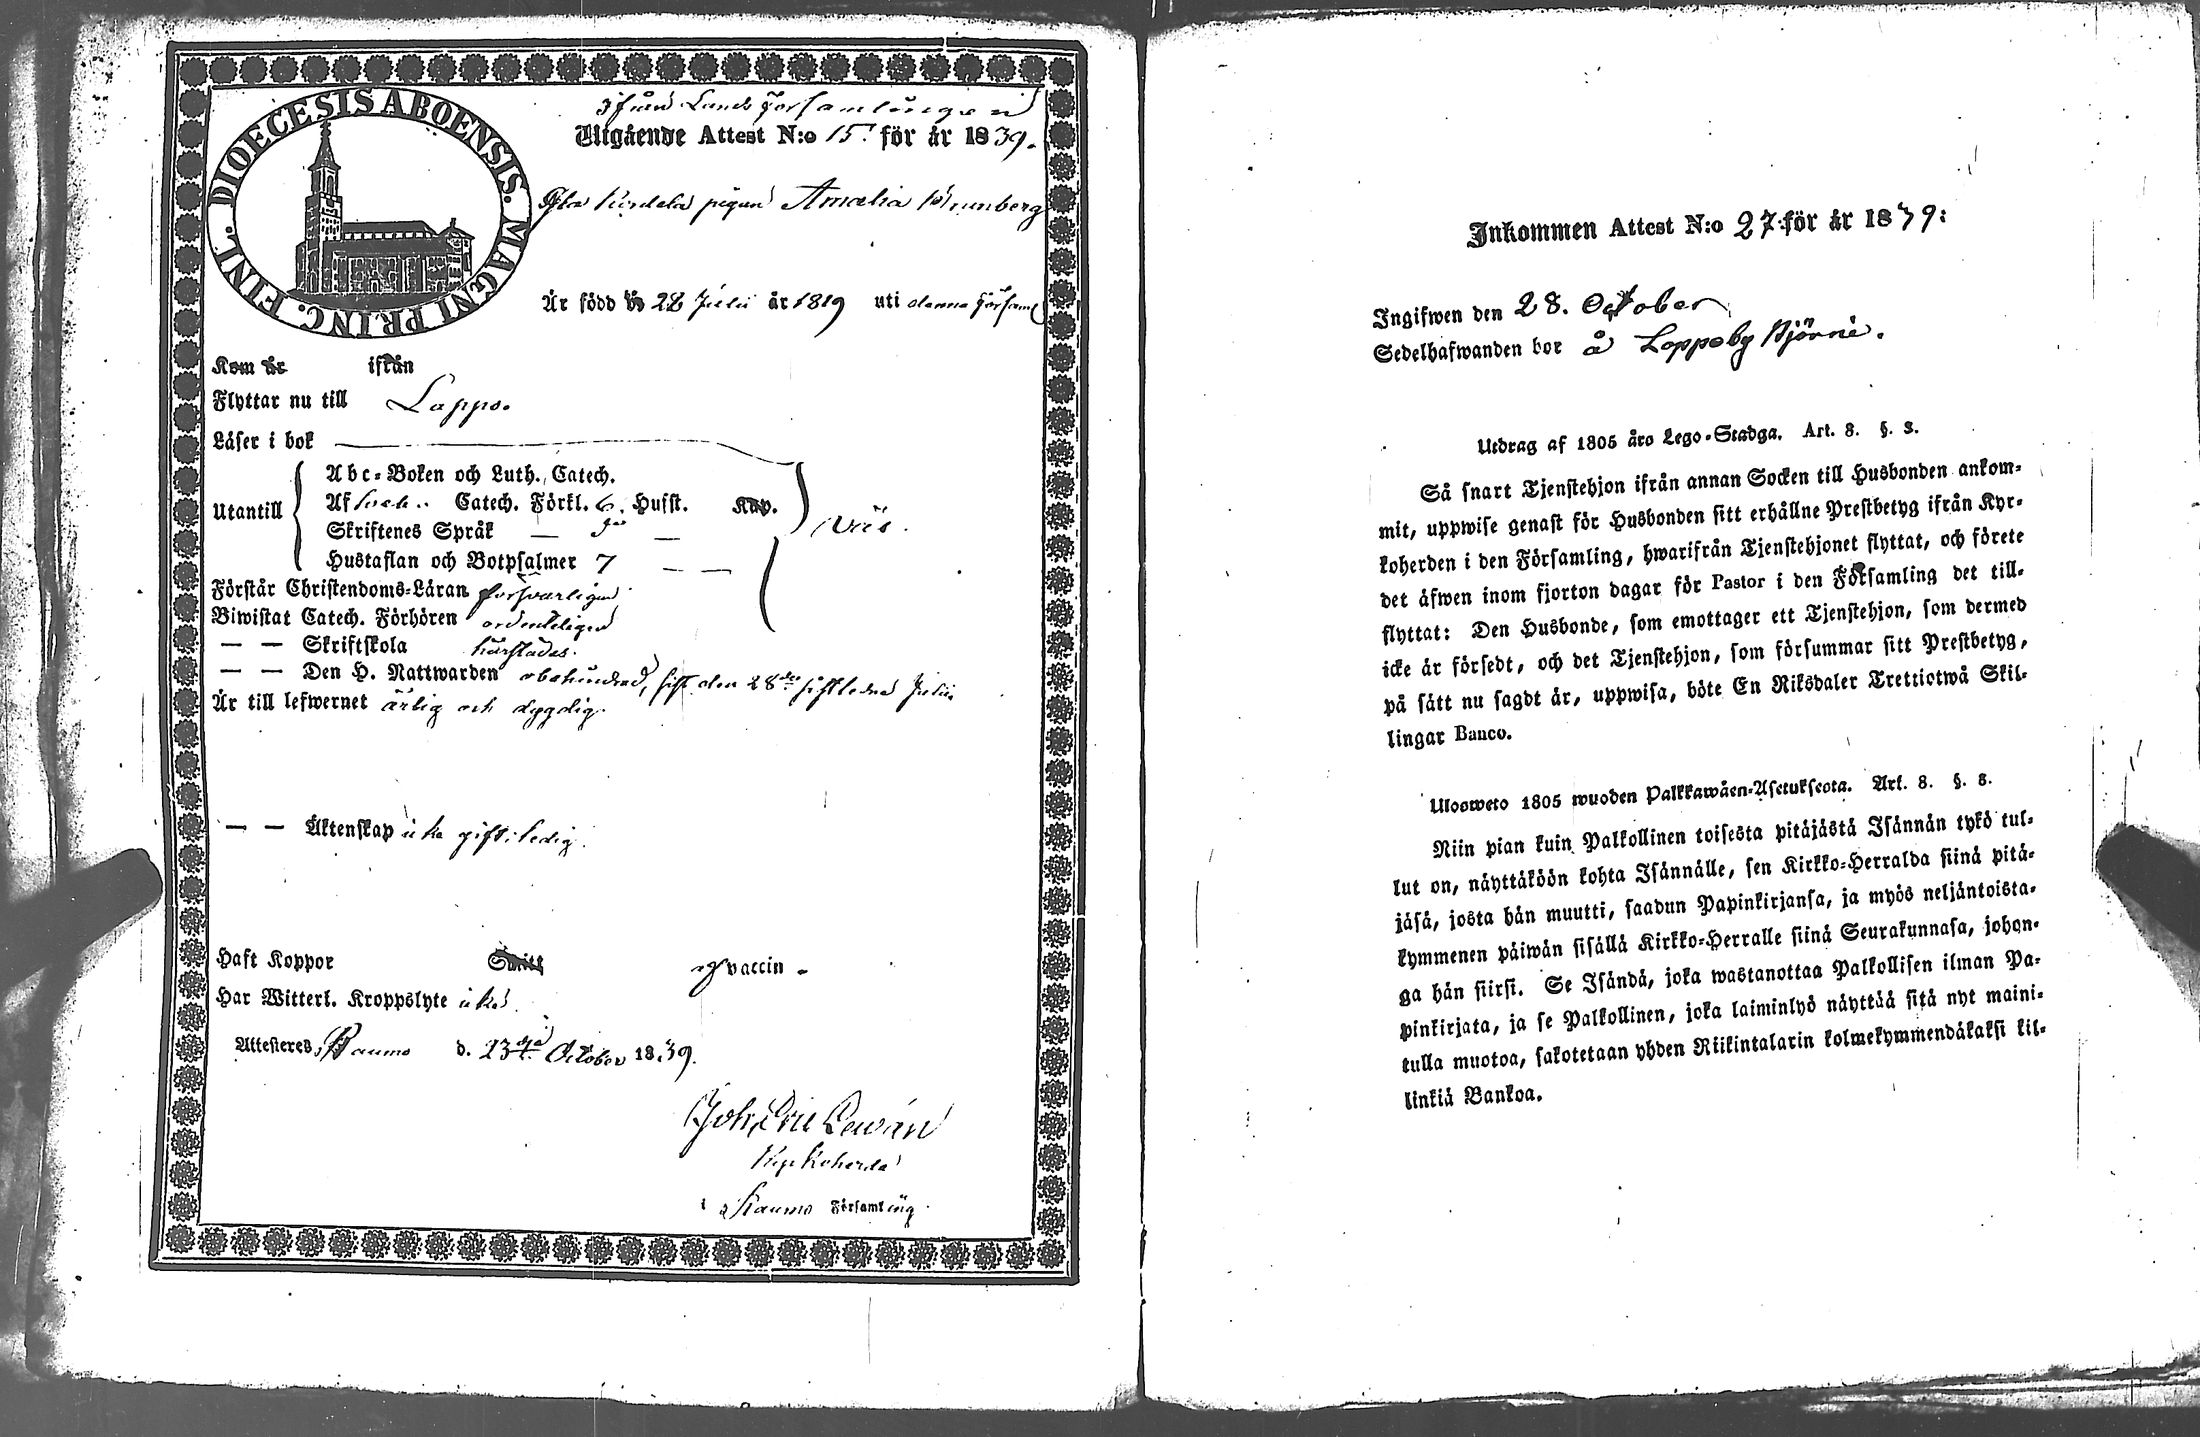 DIOECESIS ABOENSIS. MAGNI PRINC. FINL.
ifrån Lands Församlingen
Utgående Attest N:o 15. för år 1839.
pigan Amalia Brunberg
Är född d. 28 Julii år 1819 uti denna Församl
Kom år ifrån
Flyttar nu till Lappo.
Läser i bok
Utantill
Abc-Boken och Luth. Catech.
Af Catech. Förkl. 6. Husst. Kap.
Skriftenes Språk —
Hustaflan och Botpsalmer 7 — —
Förstår Christendoms-Läran försvarligen
Biwistat Catech. Förhören ordenteligen
— — Skriftskola härstädes.
— — Den H. Nattwarden obehindrad, sist den 28de sistledne Julii
Är till lefwernet ärlig och dygdig.
— — Äktenskap icke gift: ledig.
Haft Koppor vaccin.
Har Witterl. Kroppslyte icke.
Attesteres, Raumo d. 23dje October 1839.
Joh. Eric Lewán
Kyrkoherde
i Raumo Församling.
Inkommen Attest N:o 27 för år 1839:
Ingifwen den 28. October
Sedelhafwanden bor å Loppeby Björni.
Utdrag af 1805 års Lego-Stadga. Art. 8. §. 8.
Så snart Tjenstehjon ifrån annan Socken till Husbonden ankom-
mit, uppwise genast för Husbonden sitt erhållne Prestbetyg ifrån Kyr-
koherden i den Församling, hwarifrån Tjenstehjonet flyttat, och förete
det äfwen inom fjorton dagar för Pastor i den Församling det till-
flyttat: Den Husbonde, som emottager ett Tjenstehjon, som dermed
icke är försedt, och det Tjenstehjon, som försummar sitt Prestbetyg,
på sätt nu sagdt är, uppwisa, böte En Riksdaler Trettiotwå Skil-
lingar Banco.
Ulosweto 1805 wuoden Palkkawäen-Asetuksesta. Art. 8. §. 8.
Niin pian kuin Palkollinen toisesta pitäjästä Isännän tykö tul-
lut on, näyttäköön kohta Isännälle, sen Kirkko-Herralda siinä pitä-
jäsä, josta hän muutti, saadun Papinkirjansa, ja myös neljäntoista-
kymmenen päiwän sisällä Kirkko-Herralle siinä Seurakunnasa, johon-
ga hän siirsi. Se Isändä, joka wastanottaa Palkollisen ilman Pa-
pinkirjata, ja se Palkollinen, joka laiminlyö näyttää sitä nyt maini-
tulla muotoa, sakotetaan yhden Riikintalarin kolmekymmendäkaksi kil-
linkiä Bankoa.